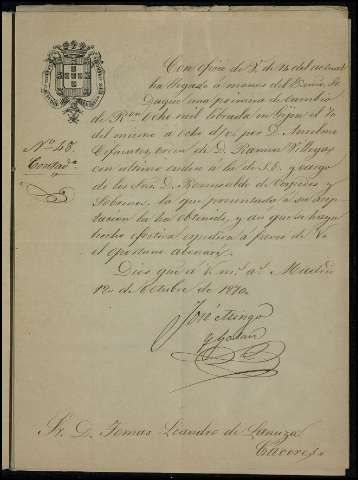 Con oficio de V. de 15 del actual
ha llegado a manos del Exmo. Sr.
Duque una primera de cambio
de Rvon. Ocho mil librada en Gijon el 7
del mismo a ocho d/v. por D. Anselmo
Cifuentes, orden de D. Ramon Villegas
Nº. 48.
con ultimo endoso a la de S.E. y cargo
Contadª.
de los Sres. D. Romualdo de Cespedes y
Sobrino, la que presentada a su aceptacion
la ha obtenido, y asi que se haya
hecho efectiva espedira a favor de V.
el oportuno abonaré
Dios gue. a V. ms. as. Madrid
de Octubre de 1870.
José Mengo
y
Sr. D. Tomas Leandro de Lanuza.
Caceres.